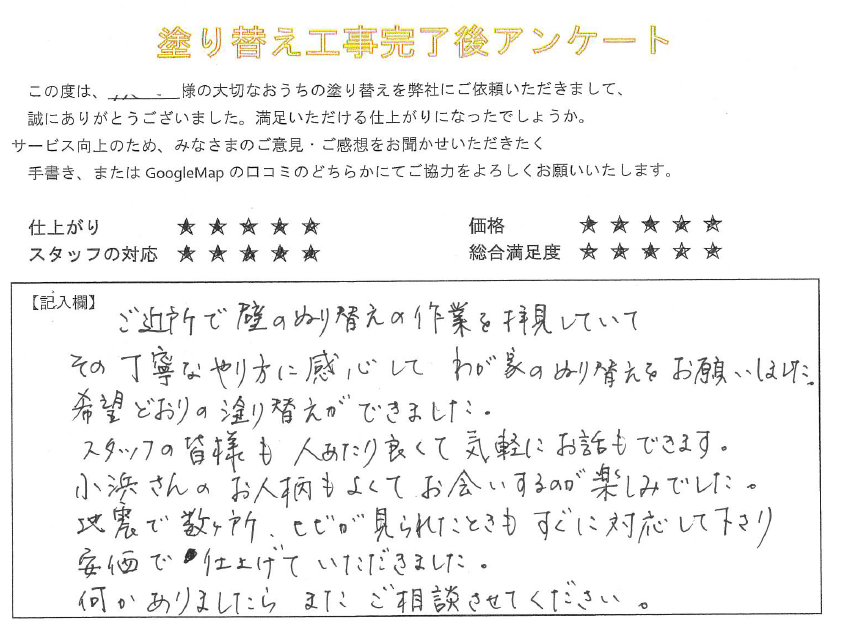 塗り替え工事完了後アンケート
この度は、様の大切なおうちの塗り替えを弊社にご依頼いただきまして、
誠にありがとうございました。満足いただける仕上がりになったでしょうか。
サービス向上のため、みなさまのご意見・ご感想をお聞かせいただきたく
手書き、または GoogleMap の口コミのどちらかにてご協力をよろしくお願いいたします。
仕上がり ★ ★ ★ ★ ★ 価格 ★ ★ ★ ★ ★
スタッフの対応 ★ ★ ★ ★ ★ 総合満足度 ★ ★ ★ ★ ★
【記入欄】
ご近所で壁のぬり替えの作業を拝見していて
その丁寧なやり方に感心して わが家のぬり替えをお願いしました。
希望どおりの塗り替えができました。
スタッフの皆様も人あたり良くて気軽にお話もできます。
小浜さんのお人柄もよくてお会いするのが楽しみでした。
地震で数ヶ所、ヒビが見られたときもすぐに対応して下さり
安価で仕上げていただきました。
何かありましたら またご相談させてください。